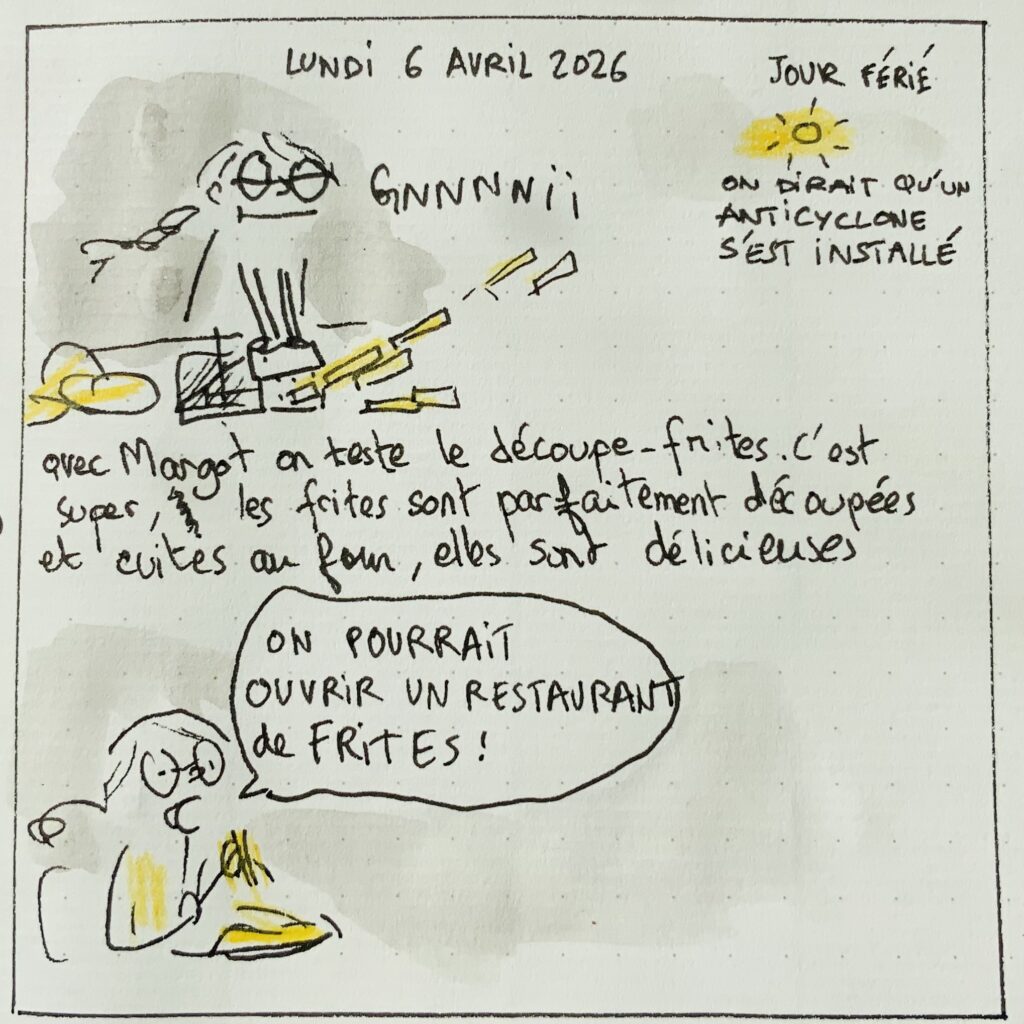 LUNDI 6 AVRIL 2026
JOUR FÉRIÉ
ON DIRAIT QU'UN
ANTICYCLONE
S'EST INSTALLÉ
GNNNNii
avec Margot on teste le découpe-frites. C'est
super, les frites sont parfaitement découpées
et cuites au four, elles sont délicieuses
ON POURRAIT
OUVRIR UN RESTAURANT
de FRITES !